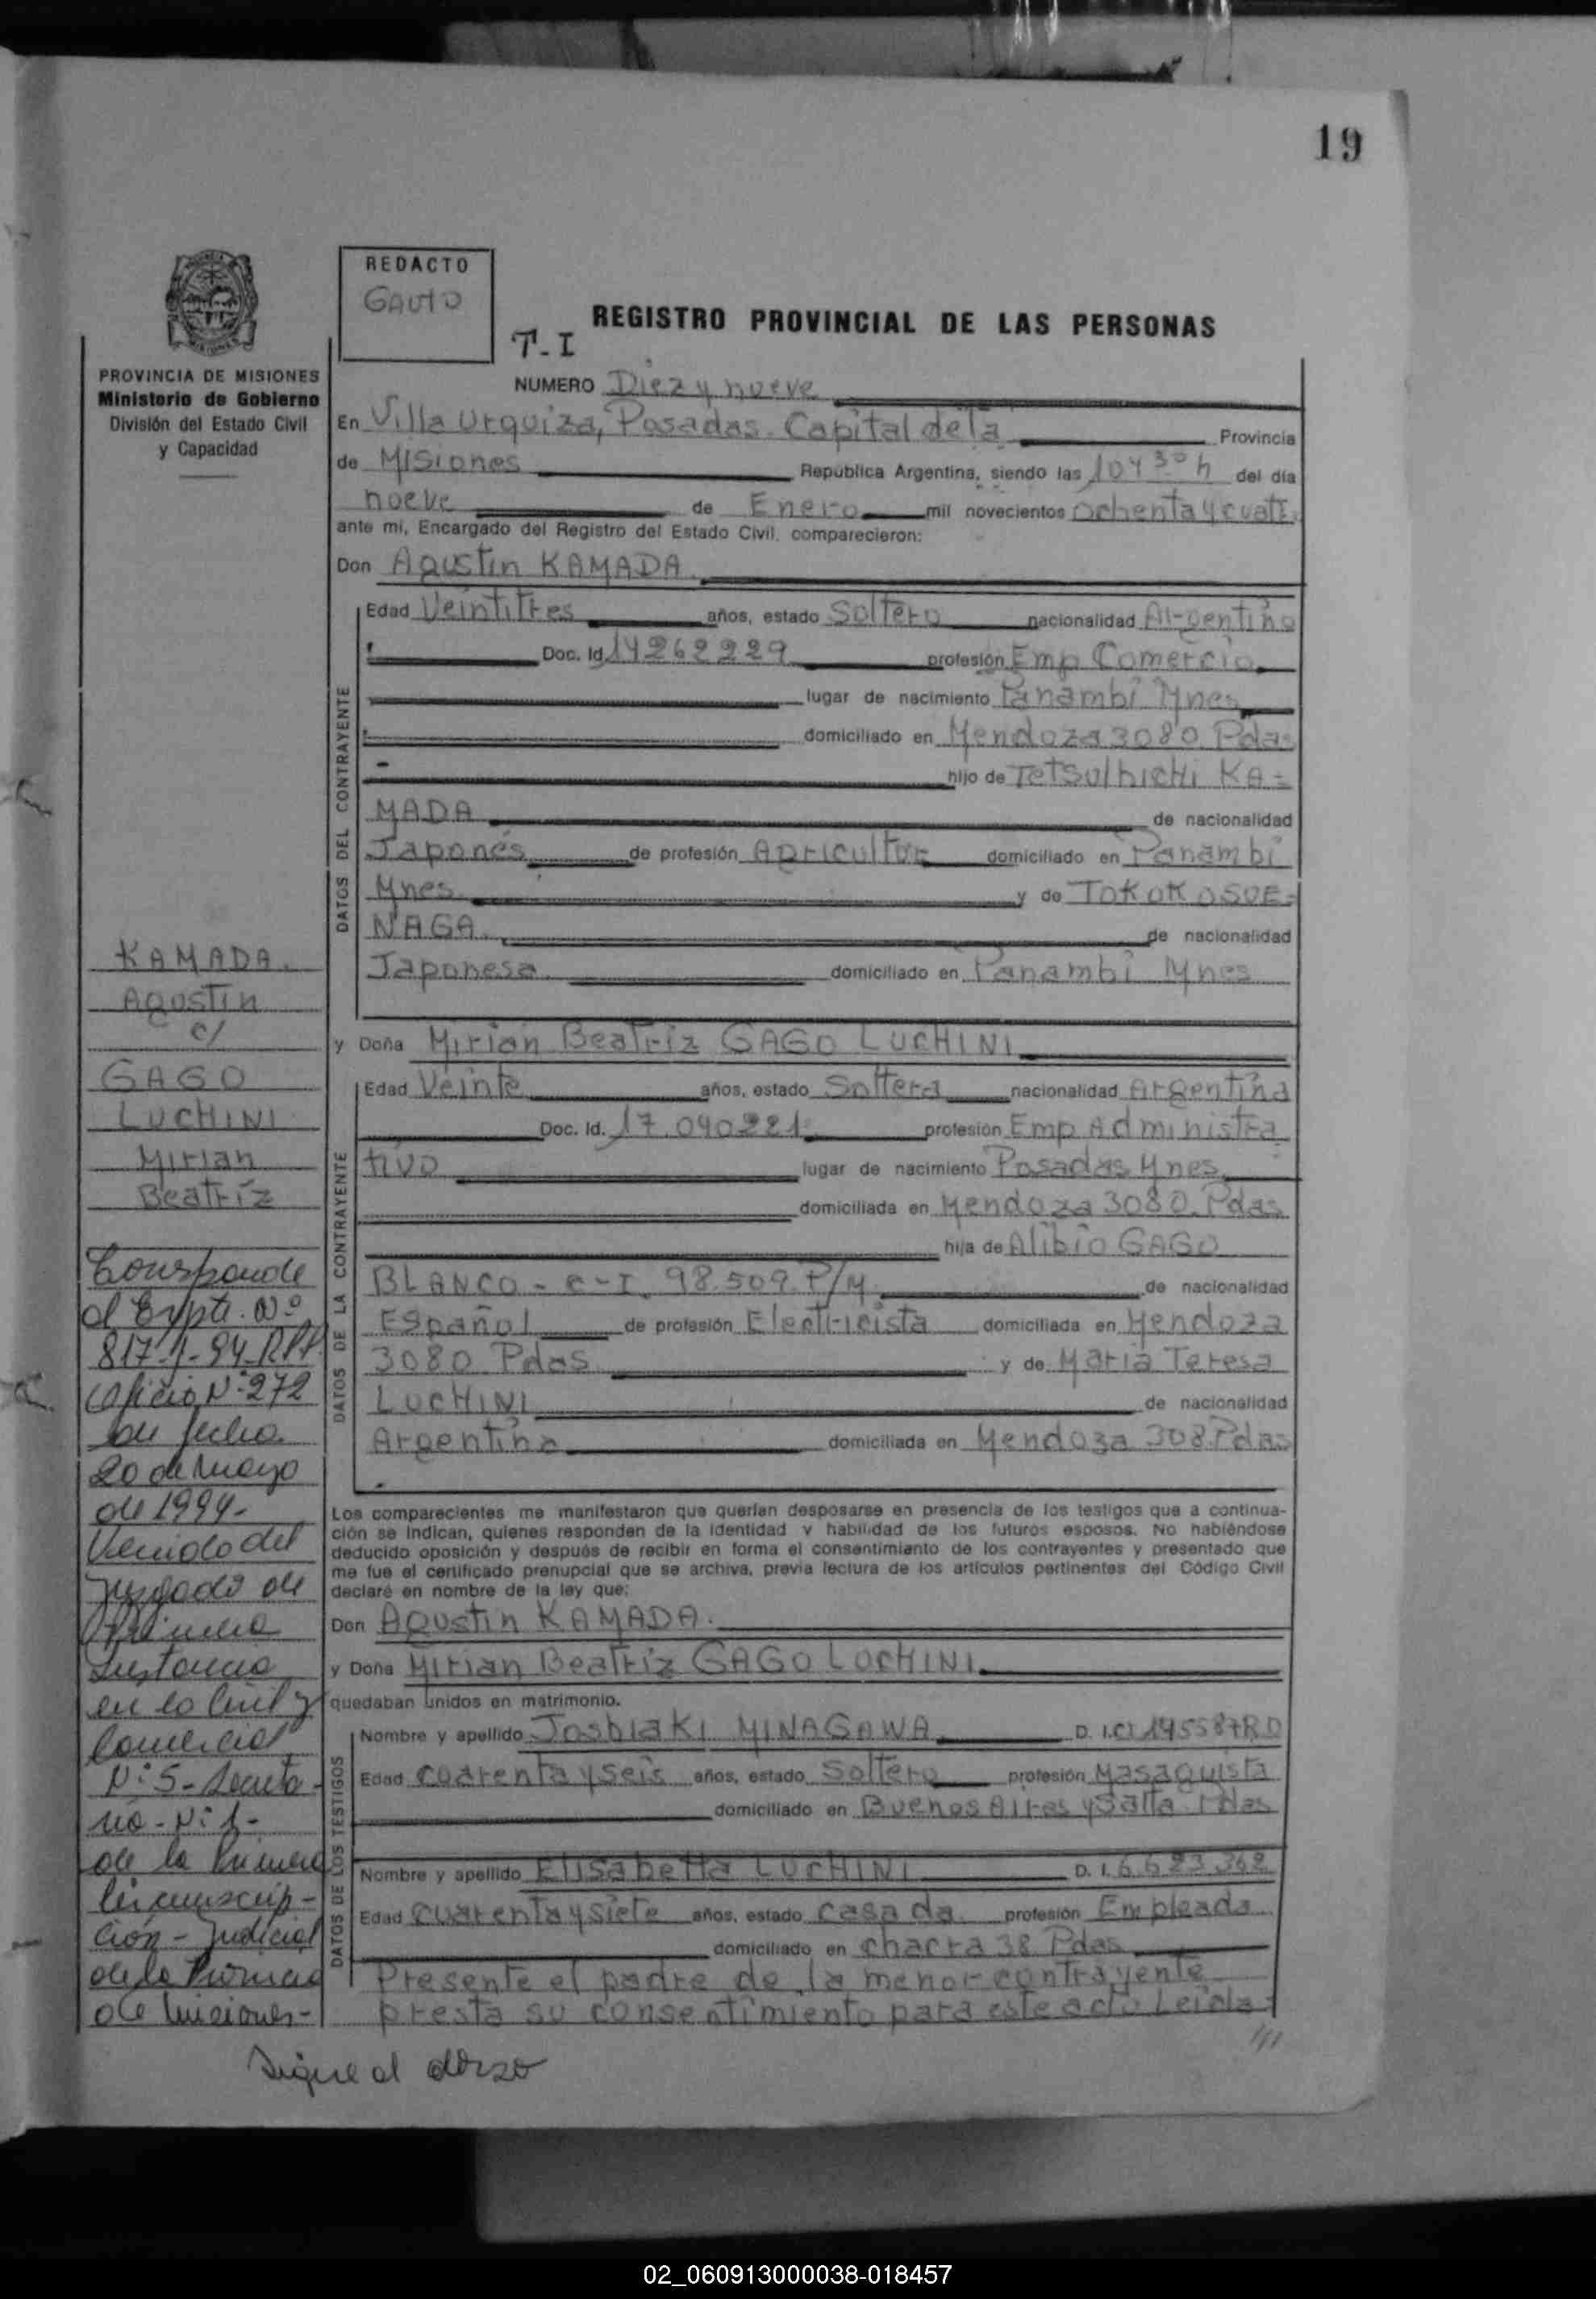 19
REDACTO
GAUTO
T-I
REGISTRO PROVINCIAL DE LAS PERSONAS
PROVINCIA DE MISIONES
Ministerio de Gobierno
División del Estado Civil
y Capacidad
NUMERO Diez y nueve
En Villa Urquiza, Posadas. Capital de la Provincia
de Misiones República Argentina, siendo las 10 y 30 h del día
nueve de Enero mil novecientos ochenta y cuatr
ante mí, Encargado del Registro del Estado Civil, comparecieron:
Don Agustin KAMADA.
DATOS DEL CONTRAYENTE
Edad Veintitres años, estado Soltero nacionalidad Argentino
Doc. Id. 14262229 profesión Emp Comercio
lugar de nacimiento Panambi Mnes
domiciliado en Mendoza 3080 Pdas
hijo de TETSUIHICHI KA=
MADA de nacionalidad
Japonés de profesión Agricultor domiciliado en Panambi
Mnes y de TOKOK OSUE=
NAGA. de nacionalidad
Japonesa domiciliado en Panambi Mnes
y Doña Mirian Beatriz GAGO LUCHINI
DATOS DE LA CONTRAYENTE
Edad Veinte años, estado Soltera nacionalidad Argentina
Doc. Id. 17.040221 profesión Emp Administra
tivo lugar de nacimiento Posadas Mnes
domiciliada en Mendoza 3080. Pdas
hija de Alibio GAGO
BLANCO - C-I. 98.509. P/M de nacionalidad
Español de profesión Electricista domiciliada en Mendoza
3080 Pdas y de Maria Teresa
LUCHINI de nacionalidad
Argentina domiciliada en Mendoza 308.Pdas
Los comparecientes me manifestaron que querían desposarse en presencia de los testigos que a continua-
ción se indican, quienes responden de la identidad y habilidad de los futuros esposos. No habiéndose
deducido oposición y después de recibir en forma el consentimiento de los contrayentes y presentado que
me fue el certificado prenupcial que se archiva, previa lectura de los artículos pertinentes del Código Civil
declaré en nombre de la ley que:
Don Agustin KAMADA.
y Doña Mirian Beatriz GAGO LUCHINI
quedaban unidos en matrimonio.
DATOS DE LOS TESTIGOS
Nombre y apellido Joshiaki MINAGAWA D. I. CI 195587RD
Edad cuarenta y seis años, estado Soltero profesión Masaguista
domiciliado en Buenos Aires y Salta. Pdas
Nombre y apellido Elisabetta LUCHINI D. I. 6.623.362
Edad cuarenta y siete años, estado casada profesión Empleada
domiciliado en chacra 38 Pdas
Presente el padre de la menor contrayente
presta su consentimiento para este acto Leida
KAMADA.
Agustin
c/
GAGO
LUCHINI
Mirian
Beatriz
Corresponde
al Expte. Nº
817-J-94-RPP
Oficio Nº 272
de fecha
20 de mayo
de 1994-
Venido del
Juzgado de
Primera
Instancia
en lo Civil y
Comercial
Nº 5- Secreta-
ría- Nº 1-
de la Primera
Circunscrip-
ción- Judicial
de la Provincia
de Misiones-
Sigue al dorso
02_060913000038-018457